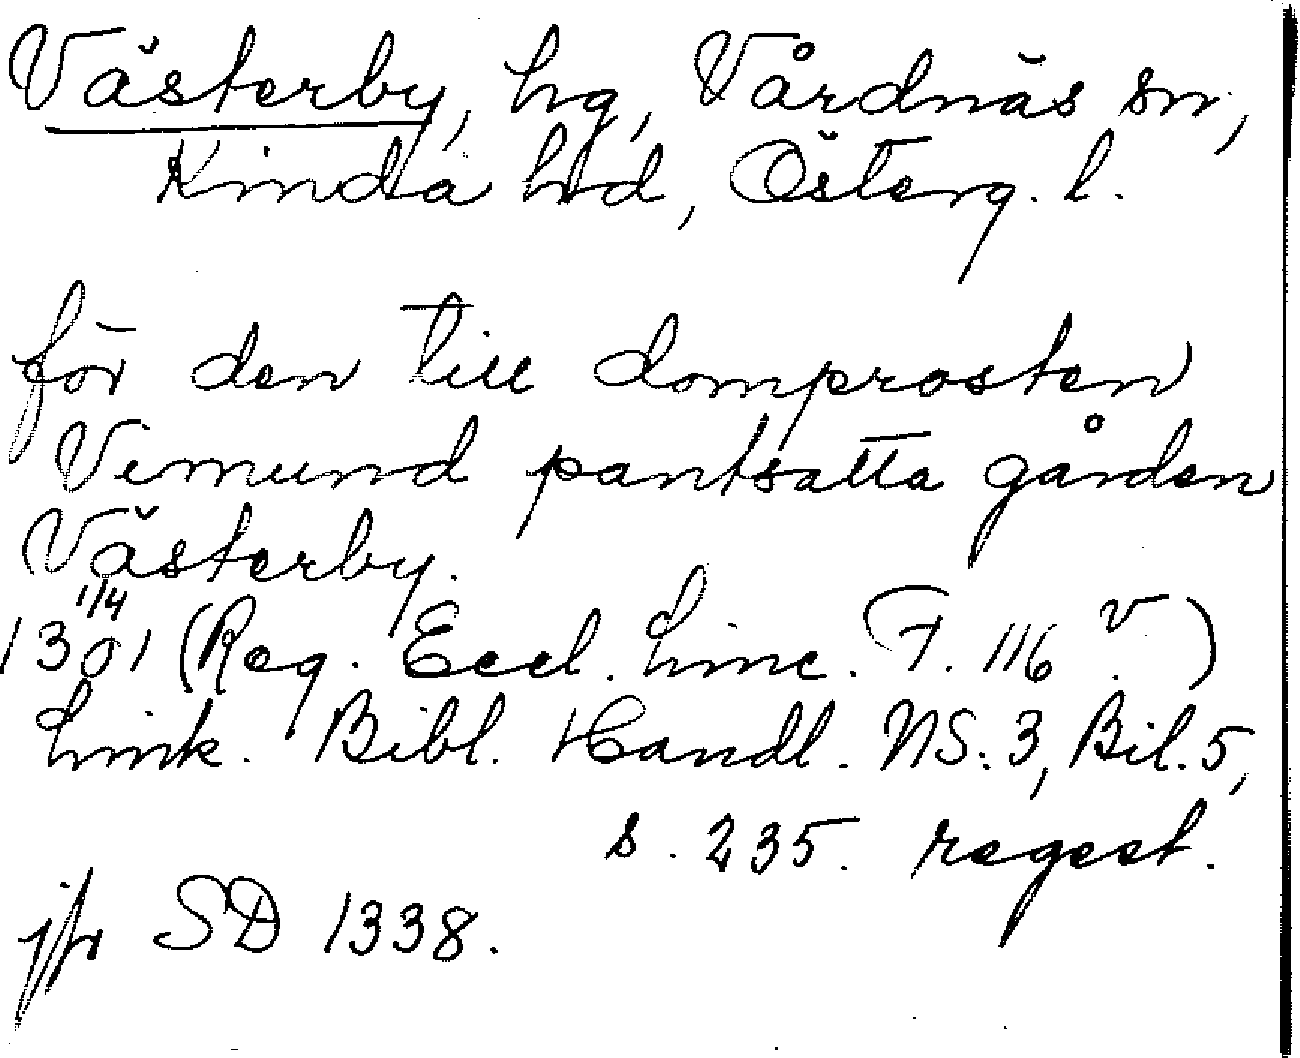 Västerby, hg, Vårdnäs sn,
Kinda hd, Österg. l.
för den till domprosten
Vemund pantsatta gården
Västerby.
1/4
1301 (Reg. Eccl. Linc. F. 116 v.)
Link. Bibl. Handl. NS: 3, Bil. 5,
s. 235. regest.
jfr SD 1338.